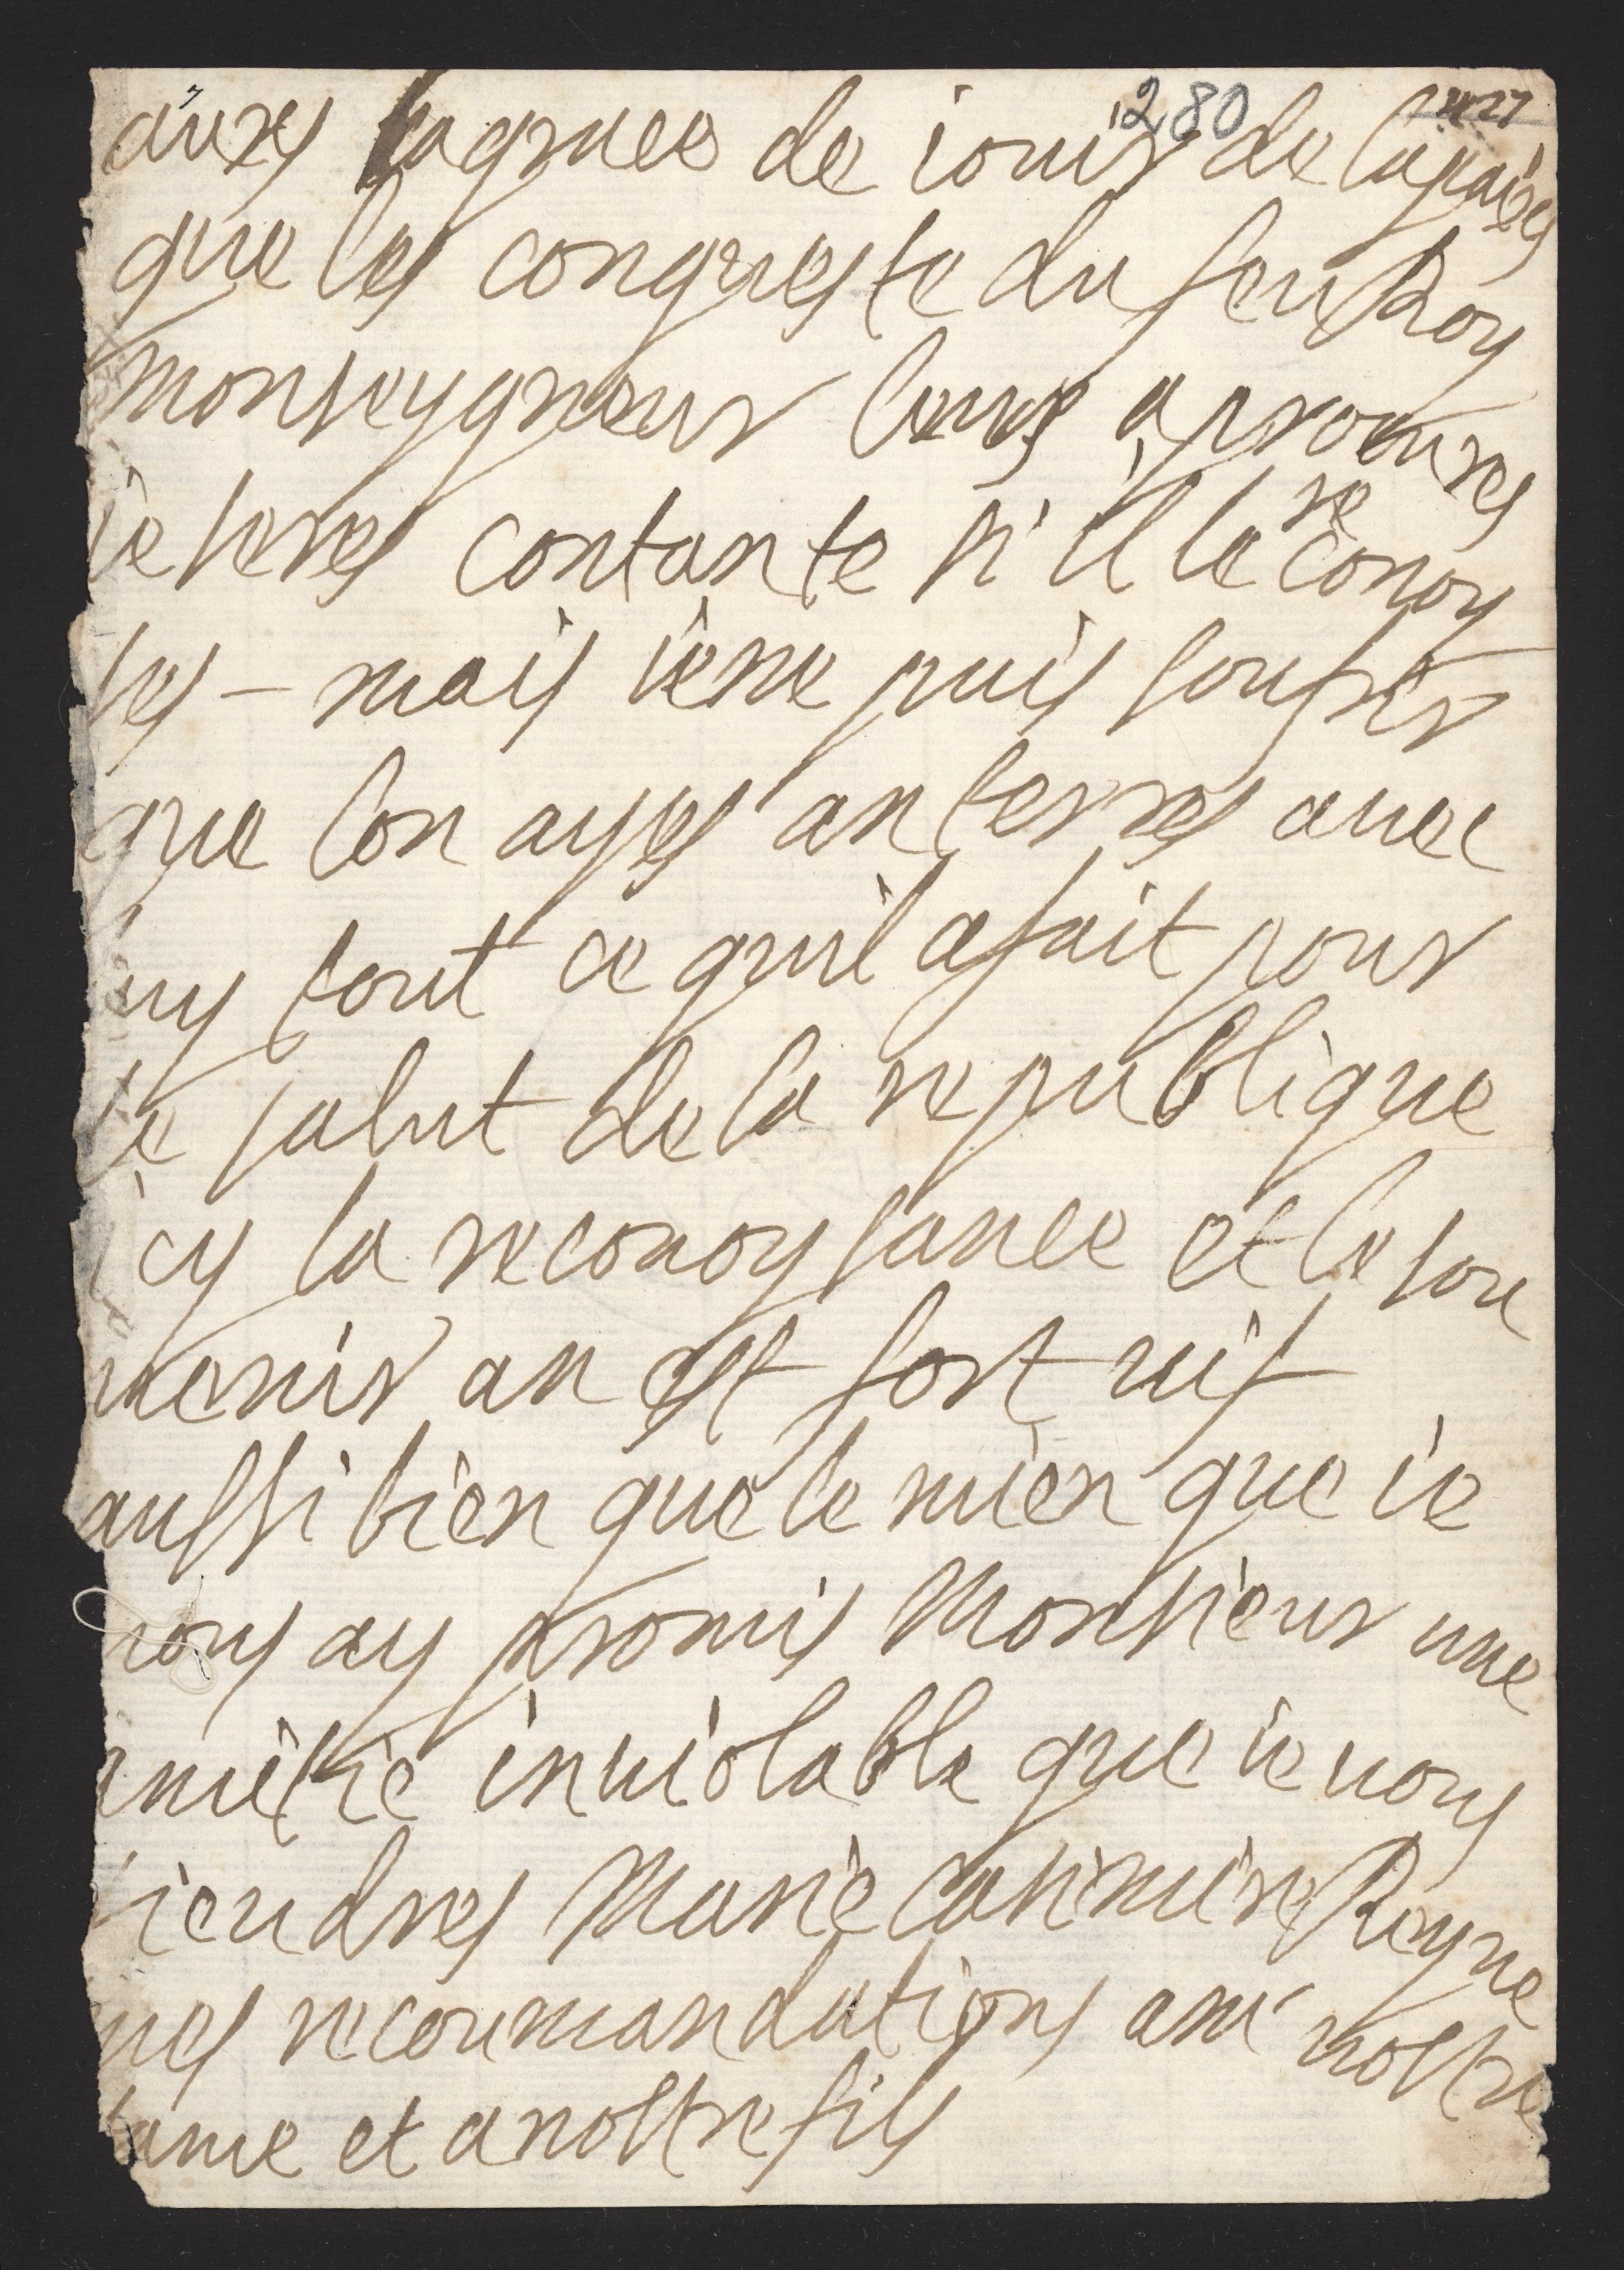 280
427
auxs la grace de iouir de la paixs
que les conqueste du feu Roy
monseygneur leurs a procures
ie seres contante si il le reconoy
ses – mais ie ne puis soufrir
que lon ayes anterres avec
luy tout ce quil a fait pour
le salut de la republique
icy la reconoysance et le sou
uenir an est fort uif
aussi bien que le mien que ie
uous ay promis Monsieur une
amitié inuiolable que ie uous
tiendres Marie Casimire Reyne
mes recoumandations a uostre
fame et a uostre fils